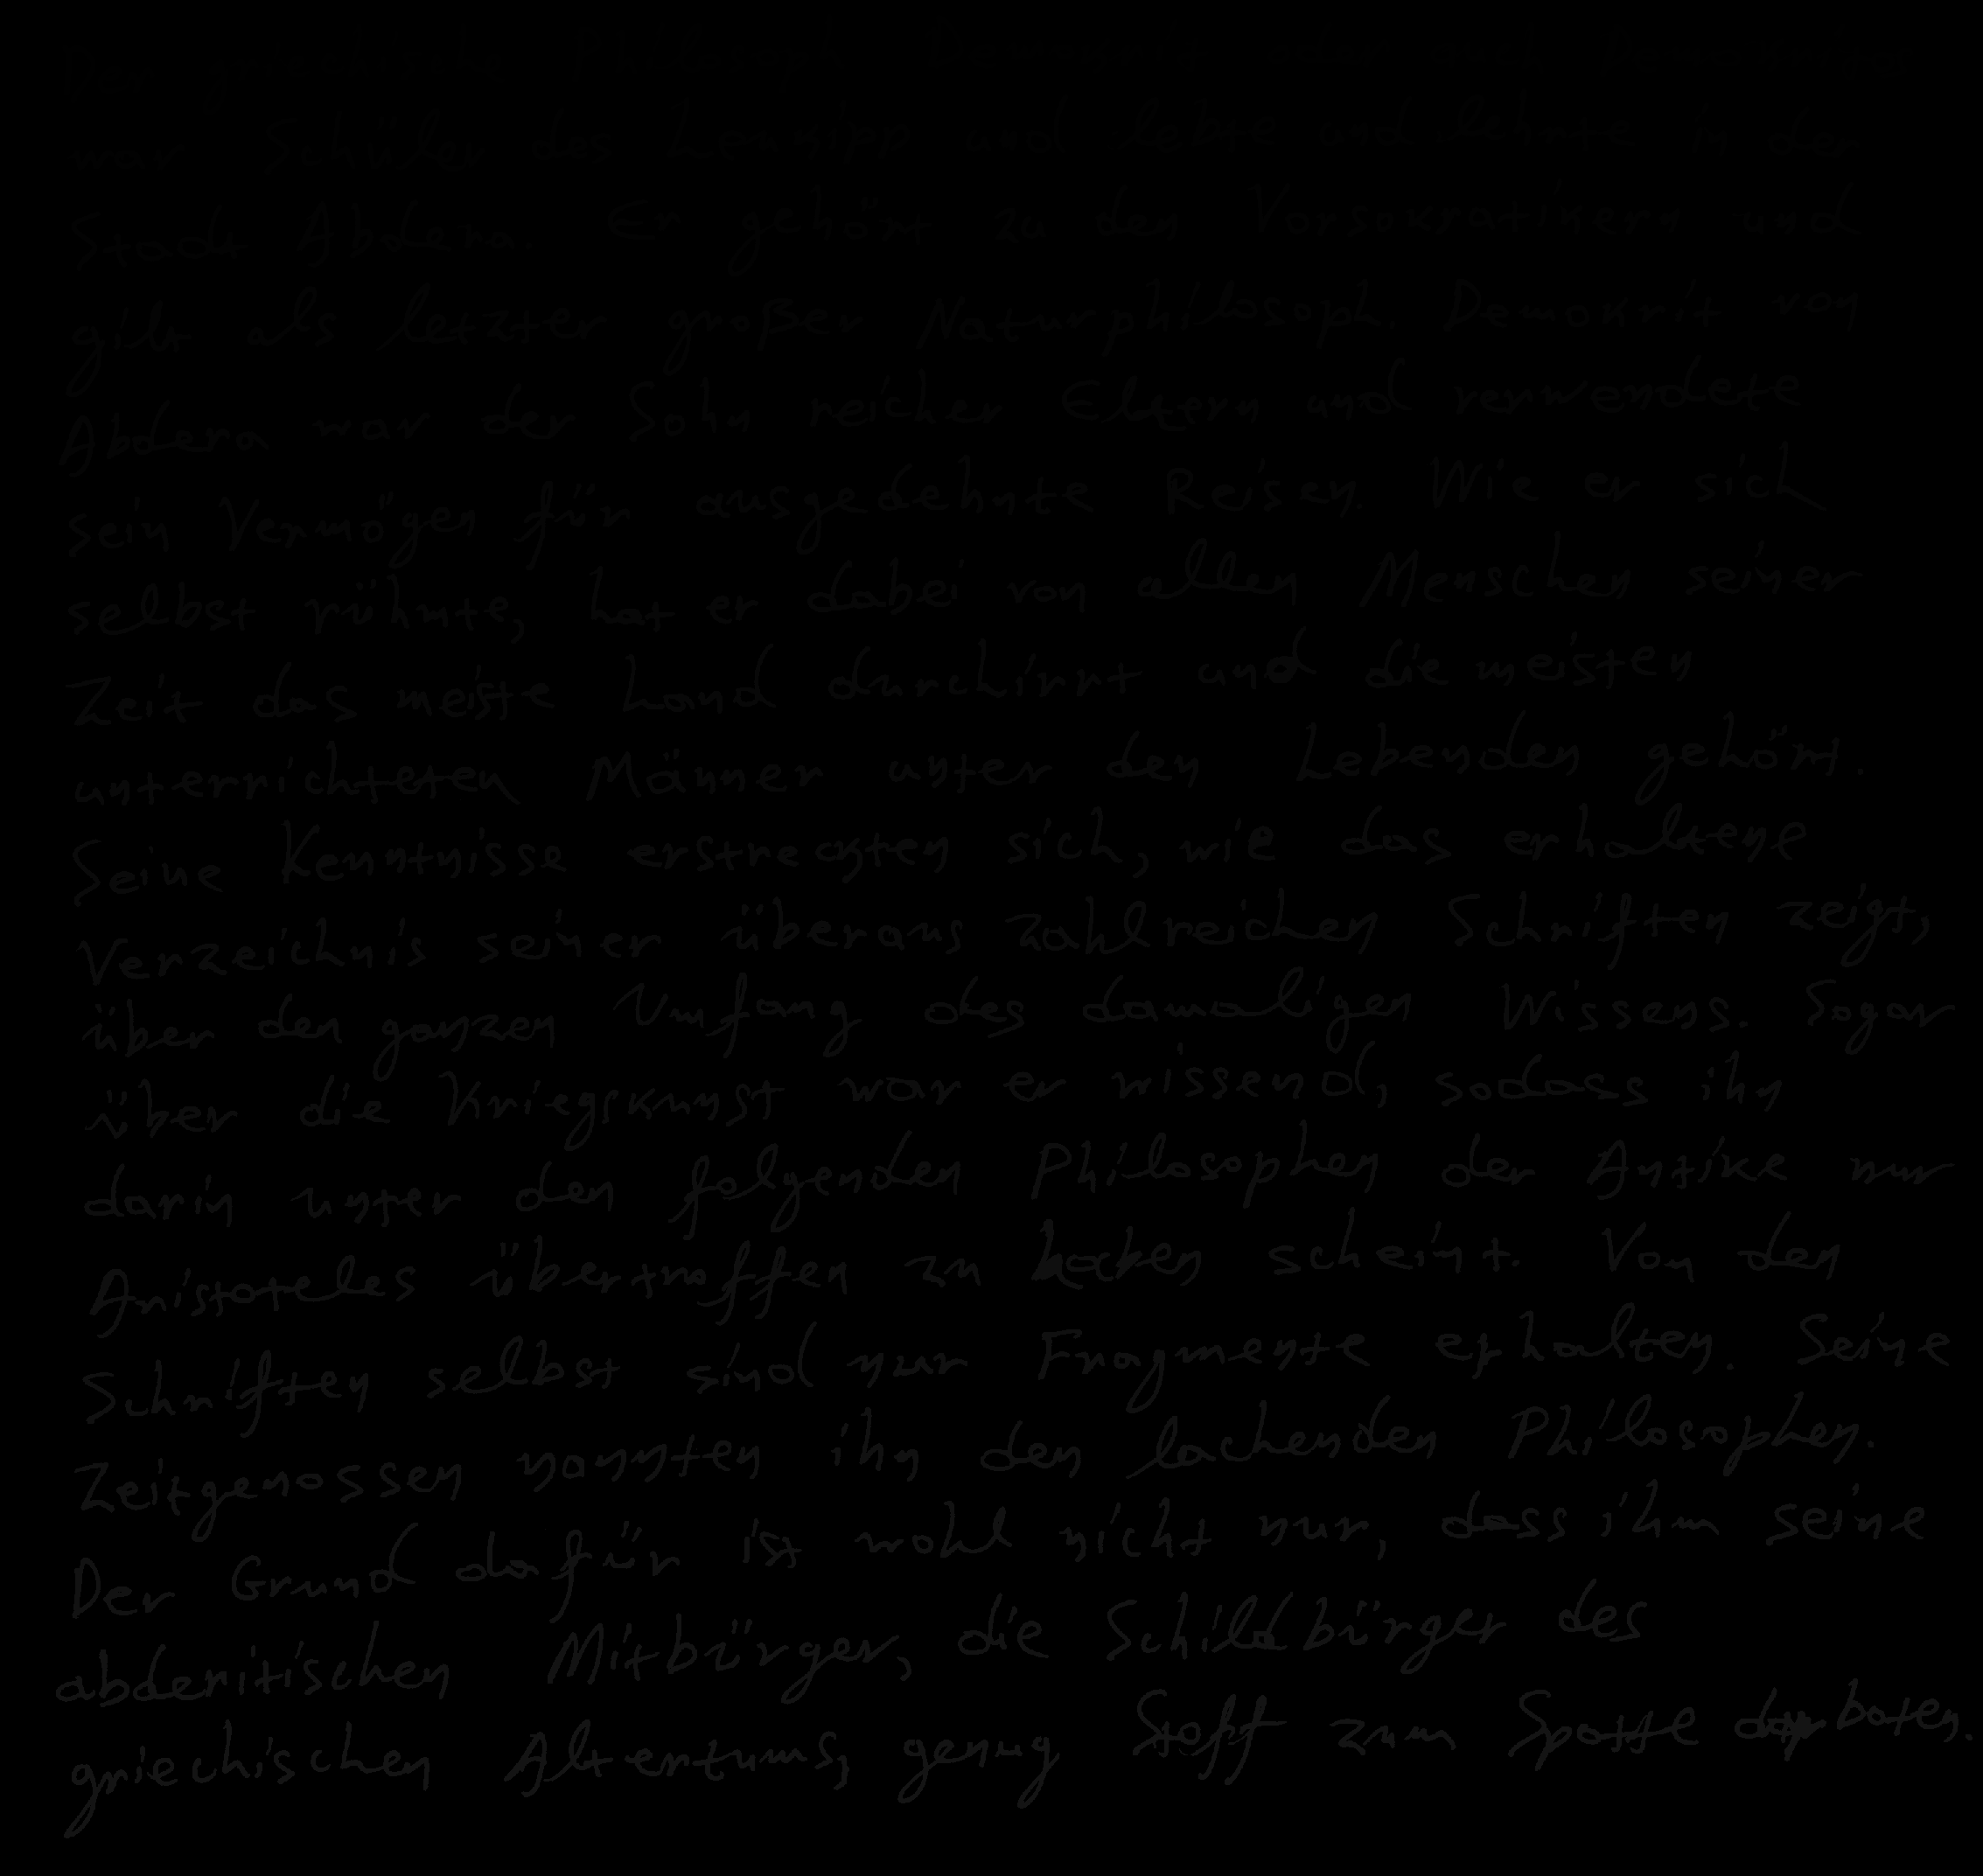 Der griechische Philosoph
war Schüler des Leukipp und lebte und lehrte in der
Stadt Abdera. Er gehört zu den Vorsokratikern und
gilt als letzter großer Naturphilosoph. Demokrit von
Abdera war der Sohn reicher Eltern und verwendete
sein Vermögen für ausgedehnte Reisen. Wie er sich
selbst rühmte, hat er dabei von allen Menschen seiner
Zeit das meiste Land durchirrt und die meisten
unterrichteten Männer unter den Lebenden gehört.
Seine Kenntnisse erstreckten sich, wie das erhaltene
Verzeichnis seiner überaus zahlreichen Schriften zeigt,
über den ganzen Umfang des damaligen Wissens. Sogar
über die Kriegskunst war er wissend, sodass ihn
darin unter den folgenden Philosophen der Antike nur
Aristoteles übertroffen zu haben scheint. Von den
Schriften selbst sind nur Fragmente erhalten. Seine
Zeitgenossen nannten ihn den lachenden Philosophen.
Der Grund dafür ist wohl nicht nur, dass ihm seine
abderitischen Mitbürger, die Schildbürger des
griechischen Altertums, genug Stoff zum Spotte darboten.